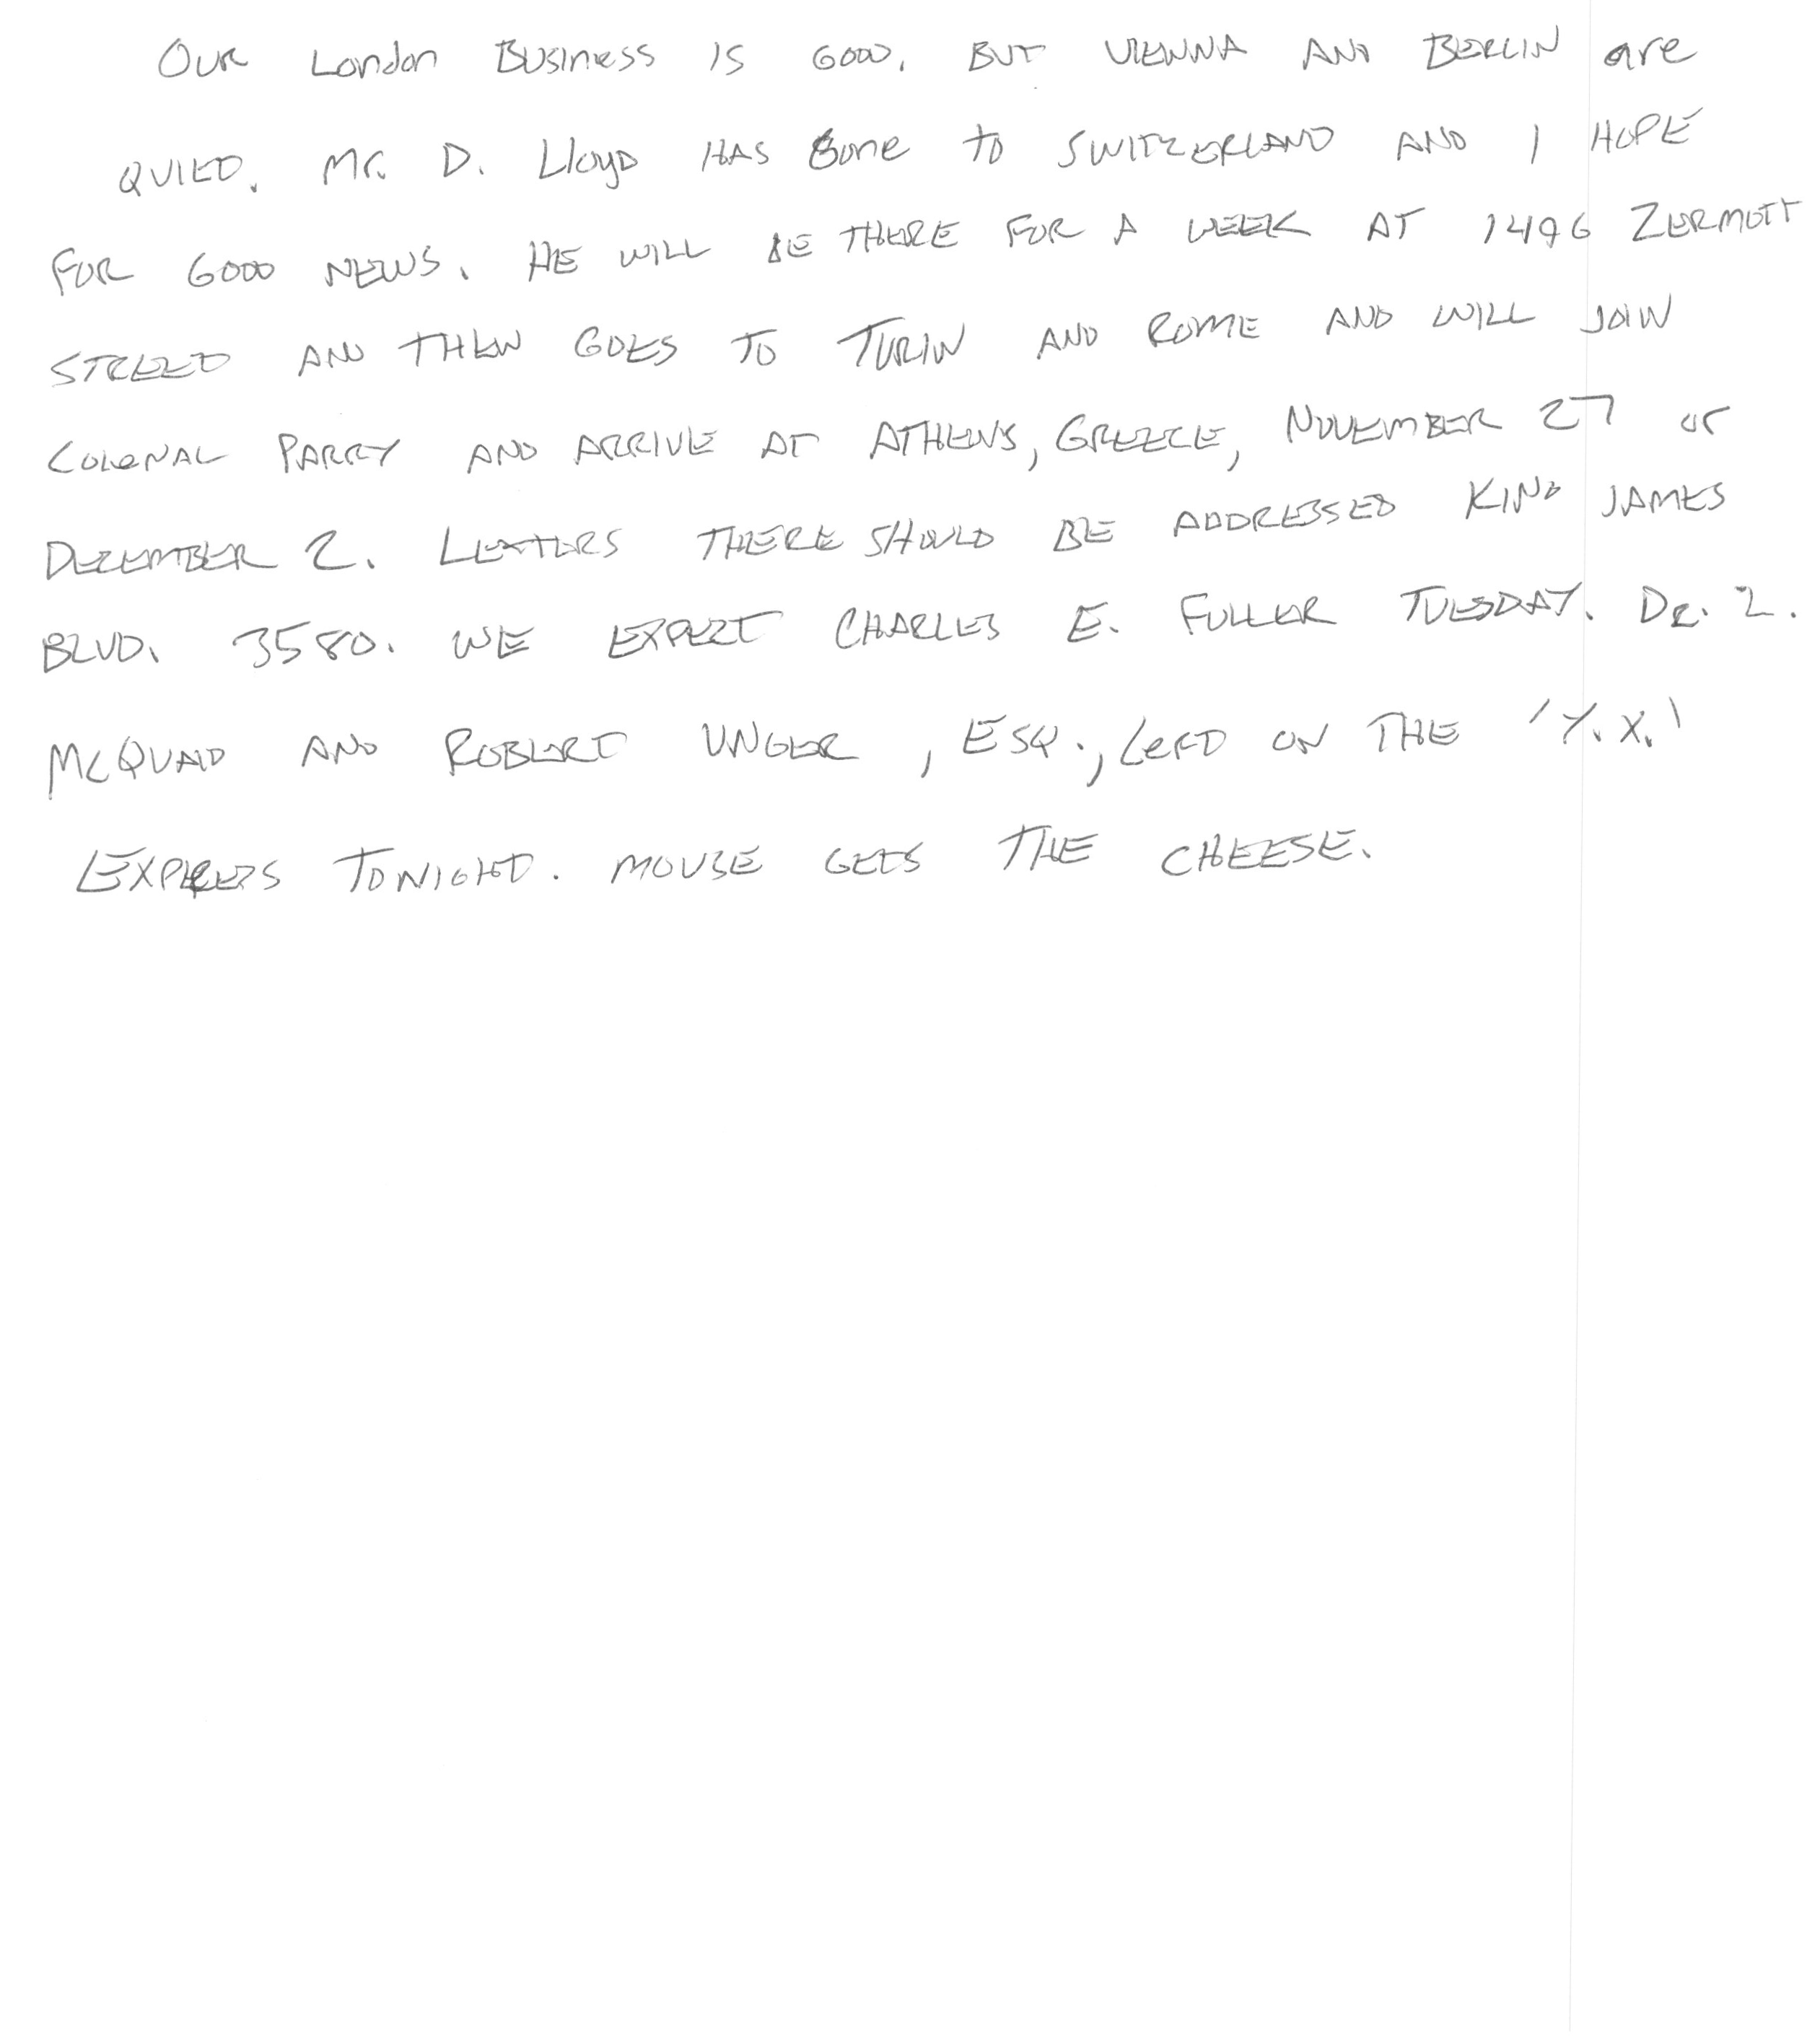 Our London Business is Good, But Vienna and Berlin are
quiet. Mr. D. Lloyd has gone to Switzerland and I hope
for good news. He will be there for a week at 1496 Zermott
Street and then goes to Turin and Rome and will join
Colonal Parry and arrive at Athens, Greece, November 27 or
December 2. Letters there should be addressed King James
Blvd. 3580. We expect Charles E. Fuller Tuesday. Dr. L.
McQuaid and Robert Unger, Esq., left on the 'Y.X.'
Express tonight. Mouse gets the cheese.